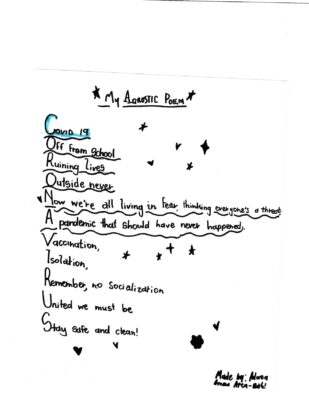 My Acrostic Poem
Covid 19
Off from School
Ruining lives
Outside never
Now we're all living in fear thinking everyone's a threat
A pandemic that should have never happened,
Vaccination,
Isolation,
Remember, no Socialization
United we must be
Stay safe and clean!
Made by: